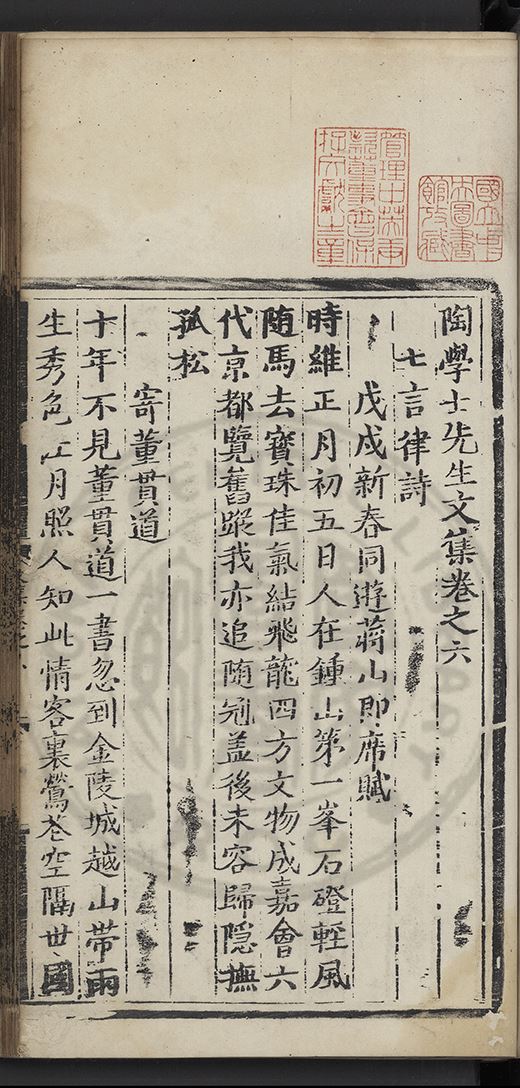 陶學士先生文集卷之六
七言律詩
戊戌新春同遊蔣山即席賦
時維正月初五日人在鍾山第一峯石磴輕風
随馬去寳珠佳氣結飛龍四方文物成嘉會六
代京都覽舊蹤我亦追随冠盖後未容歸隐撫
孤松
寄董貫道
十年不見董貫道一書忽到金陵城越山帶雨
生秀色江月照人知此情客裏鶯花空隔世國
國立中
央圖書
館攷藏
管理中英庚
款董事會保
存文獻之章